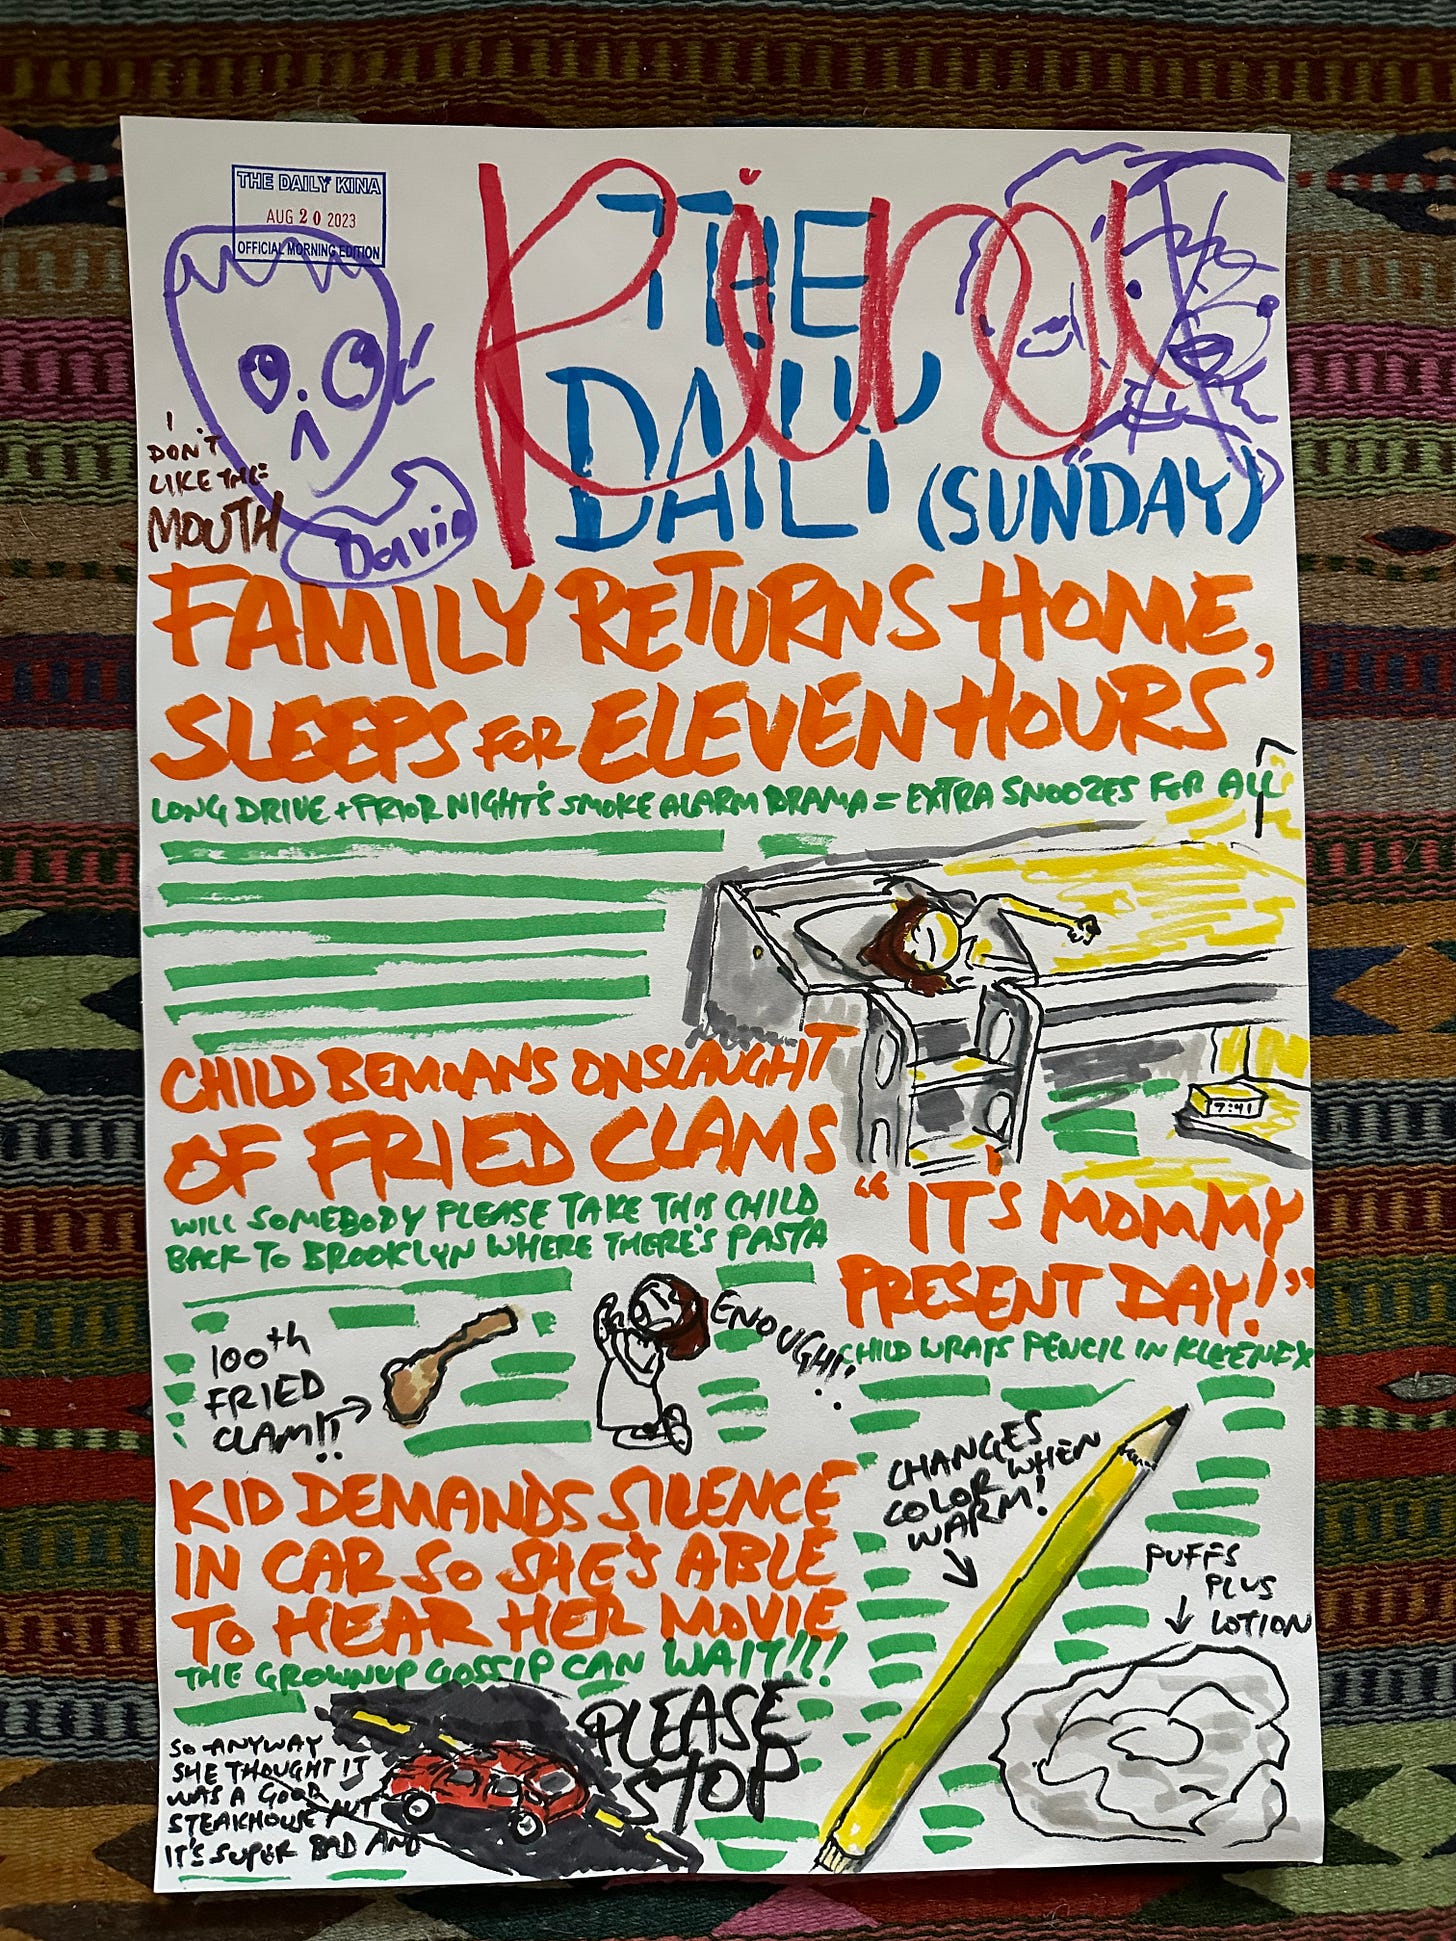 THE DAILY KINA
AUG 20 2023
OFFICIAL MORNING EDITION
THE
DAILY
Kina
(SUNDAY)
I
DON'T
LIKE THE
MOUTH
David
FAMILY RETURNS HOME,
SLEEPS FOR ELEVEN HOURS
LONG DRIVE + PRIOR NIGHT'S SMOKE ALARM DRAMA = EXTRA SNOOZES FOR ALL
7:41
CHILD BEMOANS ONSLAUGHT
OF FRIED CLAMS
WILL SOMEBODY PLEASE TAKE THIS CHILD
BACK TO BROOKLYN WHERE THERE'S PASTA
100th
FRIED
CLAM!!
ENOUGH!
"IT'S MOMMY
PRESENT DAY!"
CHILD WRAPS PENCIL IN KLEENEX
CHANGES
COLOR WHEN
WARM!
PUFFS
PLUS
LOTION
KID DEMANDS SILENCE
IN CAR SO SHE'S ABLE
TO HEAR HER MOVIE
THE GROWNUP GOSSIP CAN WAIT!!!
SO ANYWAY
SHE THOUGHT IT
WAS A GOOD
STEAKHOUSE BUT
IT'S SUPER BAD AND
PLEASE
STOP